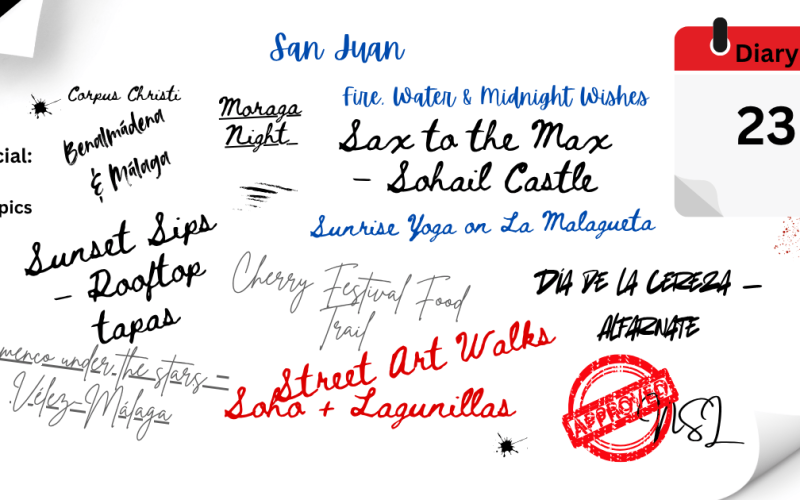 San Juan
Diary
Corpus Christi
Moraga
Night
Fire, Water & Midnight Wishes
23
Benalmádena
& Málaga
Sax to the Max
– Sohail Castle
cial:
pics
Sunset Sips
– Rooftop
tapas
Sunrise Yoga on La Malagueta
Cherry Festival Food
Trail
Día de la Cereza –
Alfarnate
menco under the stars –
Vélez-Málaga
Street Art Walks
Soho + Lagunillas
APPROVED
NSL